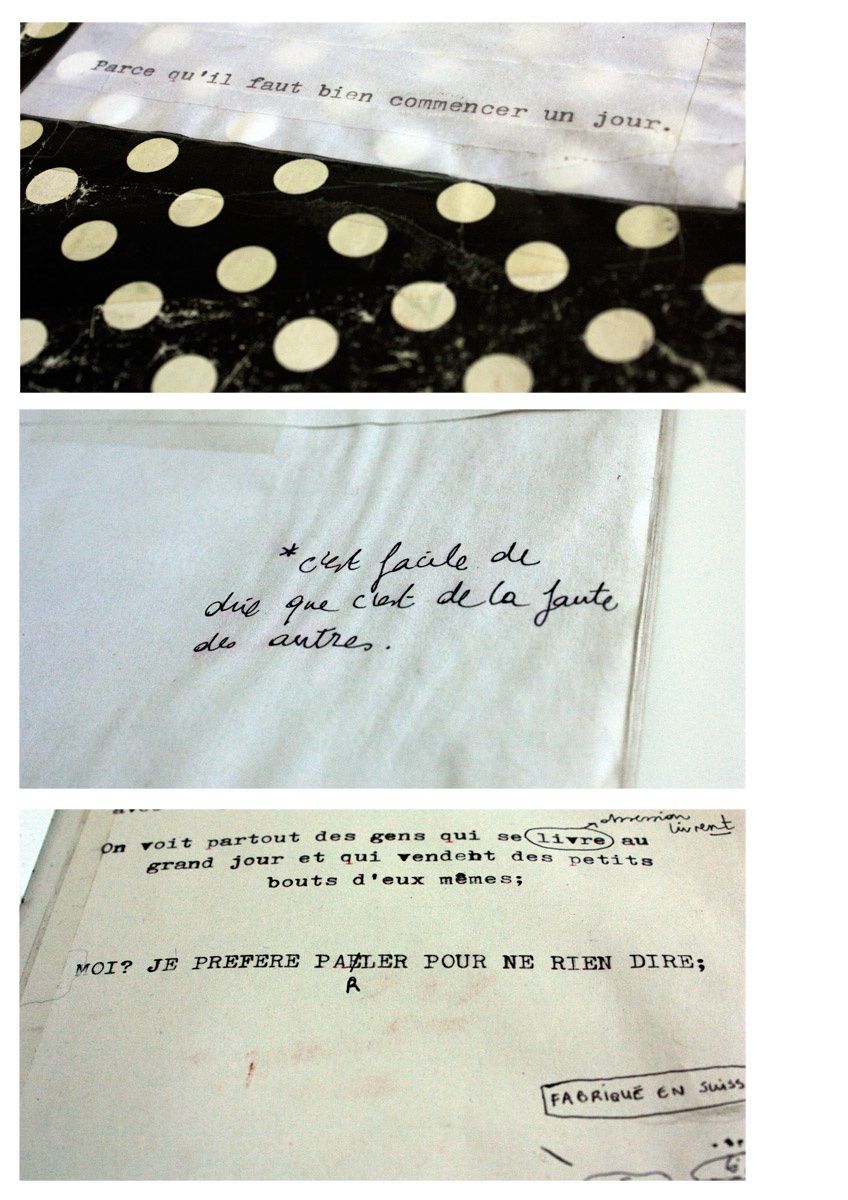 Parce qu'il faut bien commencer un jour.
*c'est facile de
dire que c'est de la faute
des autres.
obsession
livrent
On voit partout des gens qui se livre au
grand jour et qui vendent des petits
bouts d'eux mêmes;
MOI? JE PREFERE PAELER POUR NE RIEN DIRE;
R
FABRIQUÉ EN SUISS